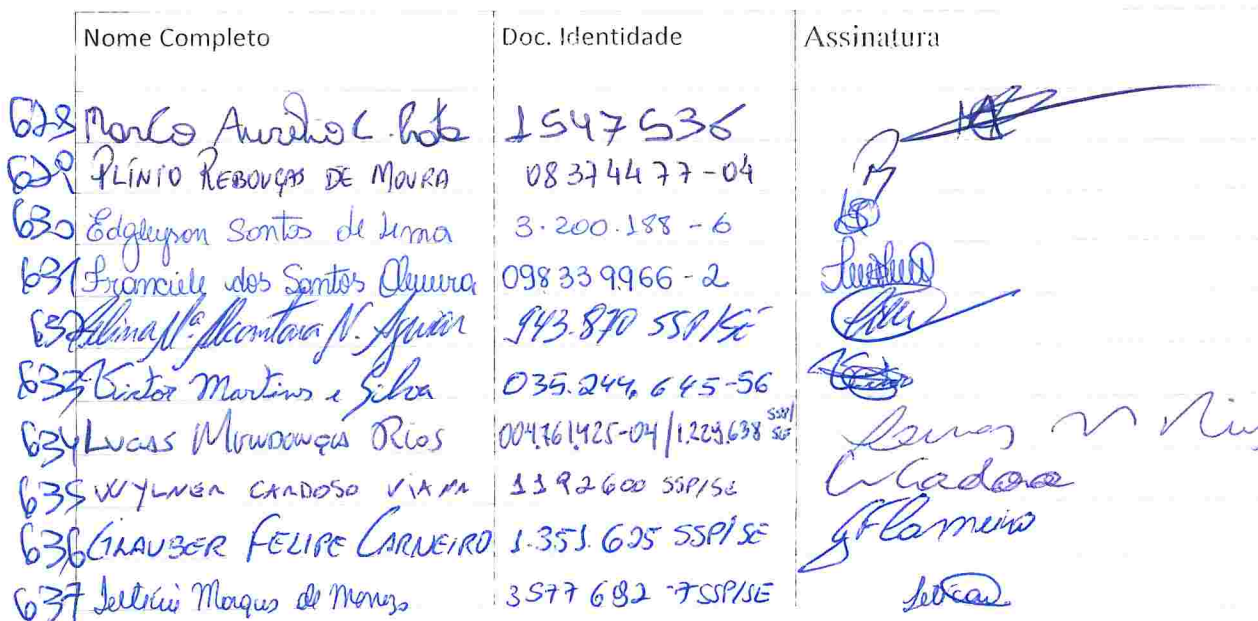 Nome Completo Doc. Identidade Assinatura
628 Marco Aurélio C. 1547536
629 PLÍNIO REBOUÇAS DE MOURA 08374477-04
630 Edgleyson Santos de Lima 3.200.188-6
631 Franciele dos Santos Oliveira 098339966-2
632 Mª Alcantara N. Aguiar 943.870 SSP/SE
633 Victor Martins e Silva 035.244.645-56
634 LUCAS MENDONÇA RIOS 004.761.425-04/1.229.638 SSP/SE Lucas M Rios
635 WYLNER CARDOSO VIANA 1192600 SSP/SE
636 GLAUBER FELIPE CARNEIRO 1.351.625 SSP/SE
637 Marques de Menezes 3577692-7 SSP/SE